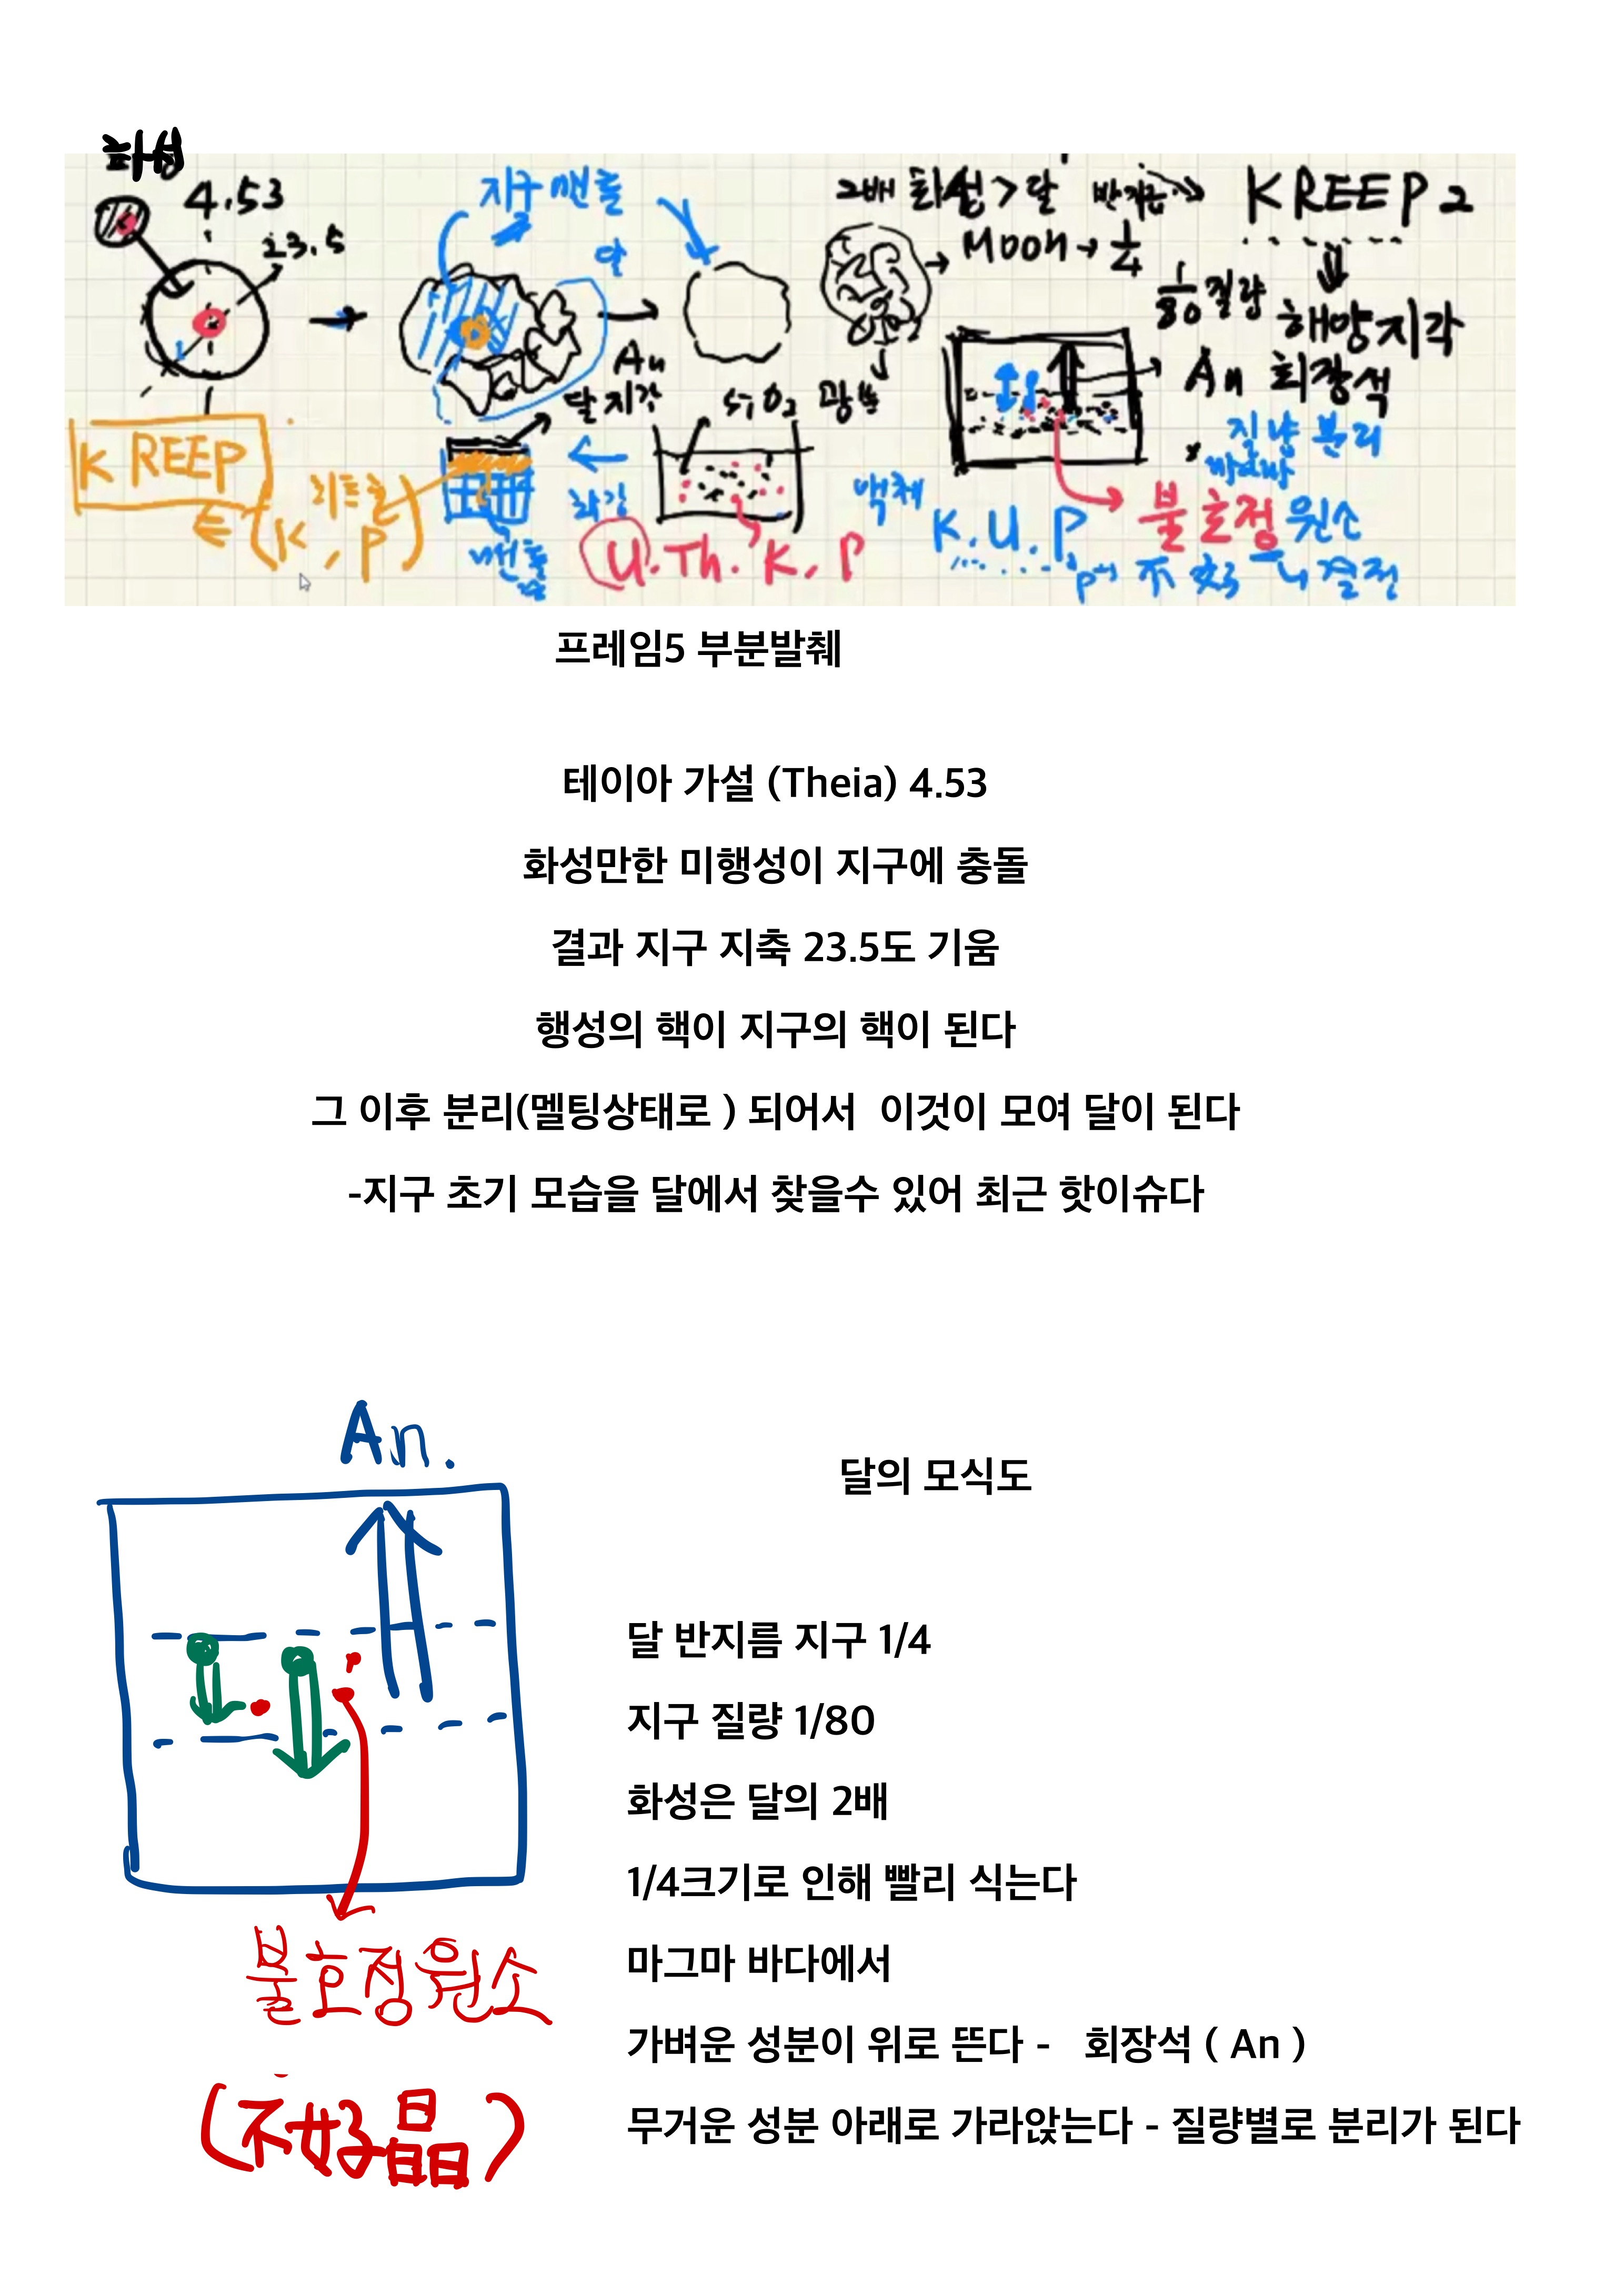 화성
4.53
23.5
지구맨틀
달
2배 화성>달 반지름 → KREEP 2
Moon → 1/4
1/80 질량 해양지각
An 회장석
An
달지각
SiO2
질량 분리
마그마
KREEP
(K, P)
맨틀
U. Th. K. P
액체
K. U. P
불호정 원소
프레임5 부분발췌
테이아 가설 (Theia) 4.53
화성만한 미행성이 지구에 충돌
결과 지구 지축 23.5도 기움
행성의 핵이 지구의 핵이 된다
그 이후 분리(멜팅상태로 ) 되어서 이것이 모여 달이 된다
-지구 초기 모습을 달에서 찾을수 있어 최근 핫이슈다
An.
달의 모식도
달 반지름 지구 1/4
지구 질량 1/80
화성은 달의 2배
1/4크기로 인해 빨리 식는다
마그마 바다에서
가벼운 성분이 위로 뜬다 - 회장석 ( An )
무거운 성분 아래로 가라앉는다 - 질량별로 분리가 된다
불호정원소
(不好晶)